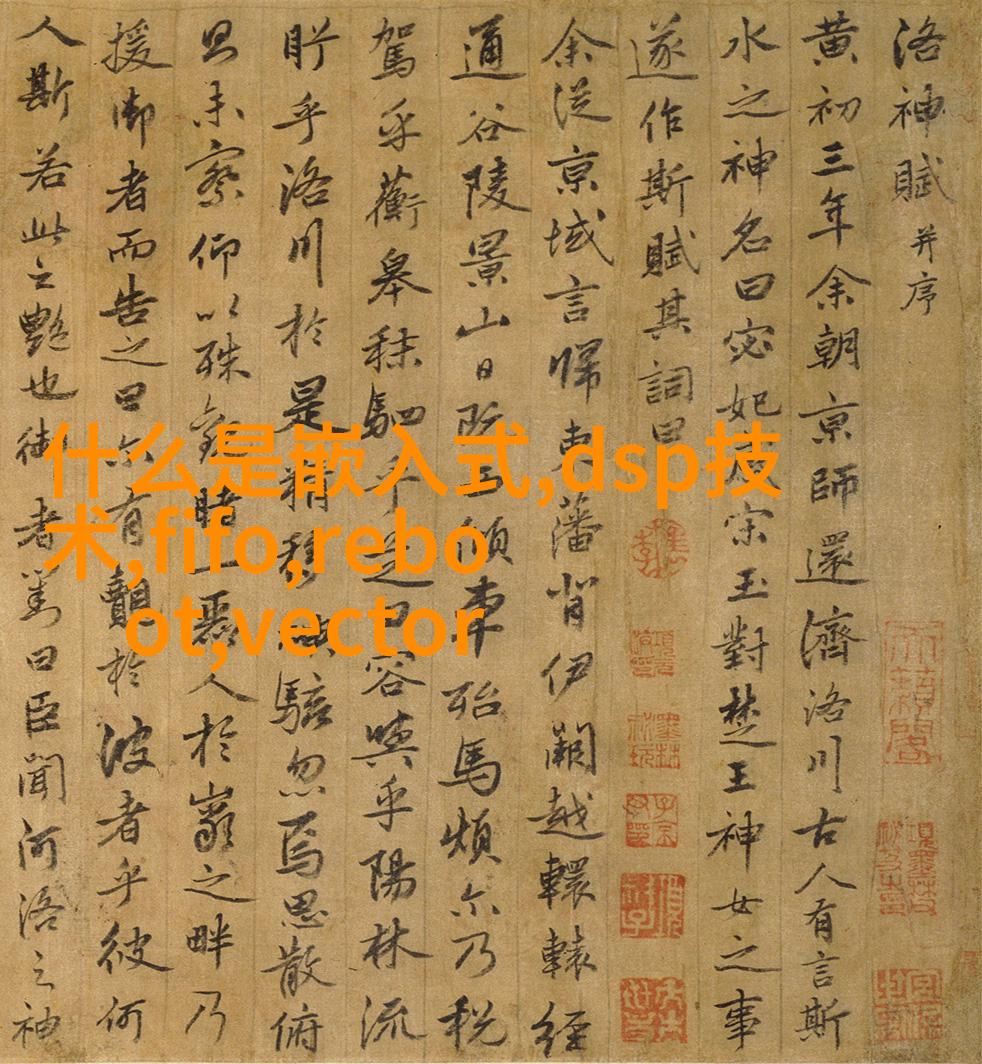 洛神賦并序
黄初三年余朝京師還濟洛川古人有言斯
水之神名曰宓妃感宋玉對楚王神女之事
遂作斯賦其詞曰
余從京域言歸東藩背伊闕越轘轅經
通谷陵景山日既西傾車殆馬煩尒乃税
駕乎蘅皋秣駟乎芝田容與乎陽林流
眄乎洛川於是精移神駭忽焉思散俯
則未察仰以殊觀睹一麗人於巖之畔乃
援御者而告之曰尒有覿於彼者乎彼何
人斯若此之艷也御者對曰臣聞河洛之神
什么是嵌入式,dsp技
术,fifo,rebo
ot,vector